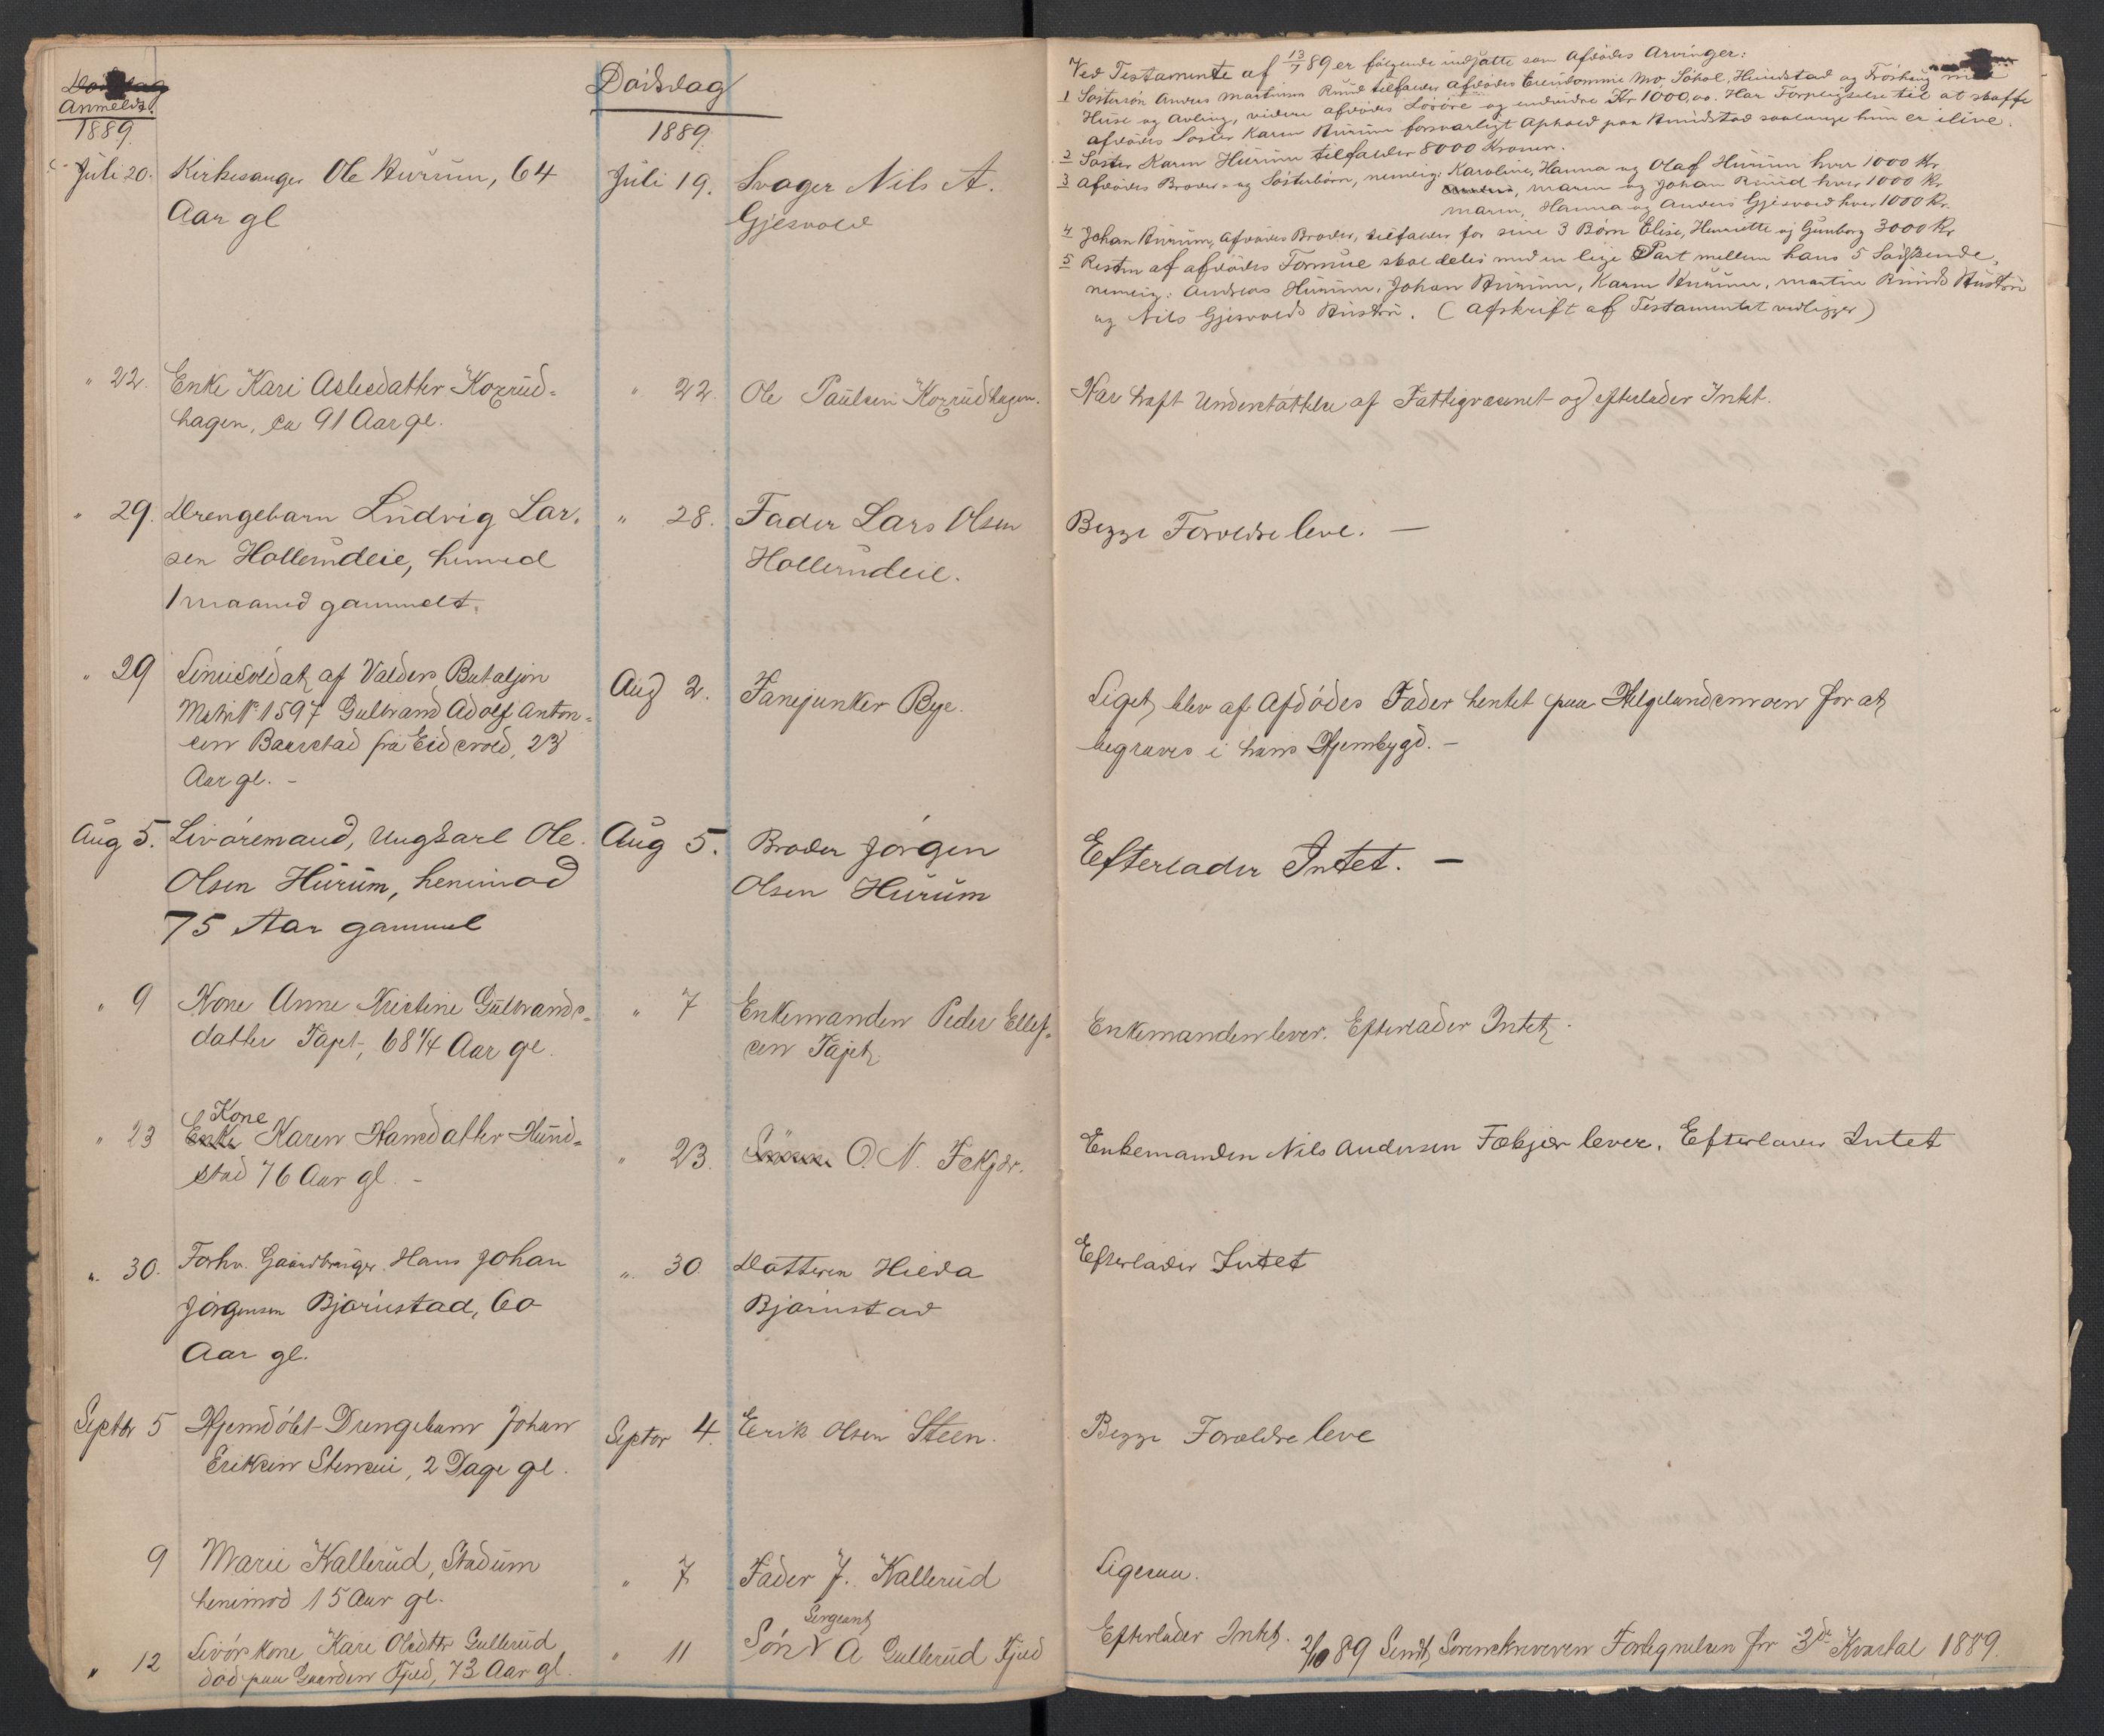 Anmeldt.
1889.
Dödsdag
1889.
Juli 20. Kirkesanger Ole Hurum, 64
Aar gl
Juli 19. Svager Nils A.
Gjesvold
Ved Testamente af 13/7 89 er følgende indsatte som Afdødes Arvinger:
1 Søstersøn Anders Martinsen Ruud tilfalder Afdødes Eiendomme Søhol, Hundstad og
Huse og Avling, videre afdødes Løsøre og endvidre Kr 1000,00. Har Forpligtelse til at skaffe
afdødes Søster Karen Hurum forsvarligt Ophold paa Hundstad saalænge hun er ilive.
2 Søster Karen Hurum tilfalder 8000 Kroner.
3 Afdødes Broder- og Søsterbörn, nemlig: Karoline, Hanna og Olaf Hurum hver 1000 Kr
Anders, Maren og Johan Ruud hver 1000 Kr
Maren, Hanna og Anders Gjesvold hver 1000 Kr.
4 Johan Hurum, Afdødes Broder, tilfalder for sine 3 Børn Elise, Henriette og Gunborg 3000 Kr
5 Resten af afdødes Formue skal deles med en lige Part mellem hans 5 Södskende,
nemlig: Andreas Hurum, Johan Hurum, Karen Hurum, Martin Ruuds Hustru
og Nils Gjesvolds Hustru. (Afskrift af Testamentet vedligger)
" 22. Enke Kari Aslesdatter Korsrud-
hagen, ca 91 Aar gl.
" 22. Ole Paulsen Korsrudhagen.
Har havt Understøttelse af Fattigvæsenet og efterlader Intet.
" 29. Drengebarn Ludvig Lar-
sen Hollerudeie, henved
1 maaned gammelt.
" 28. Fader Lars Olsen
Hollerudeie.
Begge Forældre leve. —
" 29 Liniesoldat af Valders Bataljon
Matr No 1597 Gulbrand Adolf Anton-
sen Baarstad fra Eidsvold, 23
Aar gl. -
Aug 2. Fanejunker Bye.
Liget blev af Afdødes Fader hentet paa Helgelandsmoen for at
begraves i hans Hjembygd. -
Aug 5. Livöremand, Ungkarl Ole
Olsen Hurum, henimod
75 Aar gammel
Aug 5. Broder Jörgen
Olsen Hurum
Efterlader Intet. —
" 9 Kone Anne Kristine Gulbrands-
datter Fajet, 68 1/4 Aar gl.
" 7 Enkemanden Peder Ellef-
sen Fajet
Enkemanden lever. Efterlader Intet.
Kone
" 23 Enke Karen Hansdatter Hund-
stad 76 Aar gl. -
" 23. O. N. Fekjær.
Enkemanden Nils Andersen Fækjær lever. Efterlader Intet
" 30. Forhv. Gaardbruger Hans Johan
Jørgensen Bjørnstad, 60
Aar gl.
" 30 Datteren Hilda
Bjørnstad
Efterlader Intet
Septbr 5 Hjemdöbt Drengebarn Johan
Eriksen Steneie, 2 Dage gl.
Septbr 4. Erik Olsen Steen.
Begge Forældre leve
9 Marie Kallerud, Stadum
henimod 15 Aar gl.
" 7 Fader J. Kallerud
Ligesaa.
" 12 Livörskone Kari Olsdtr Gullerud
död paa Gaarden Fjeld, 73 Aar gl.
Sergeant
" 11 Søn A Gullerud Fjeld
Efterlader Intet. 2/10 89 Sendt Sorenskriveren Fortegnelsen for 3die Kvartal 1889.